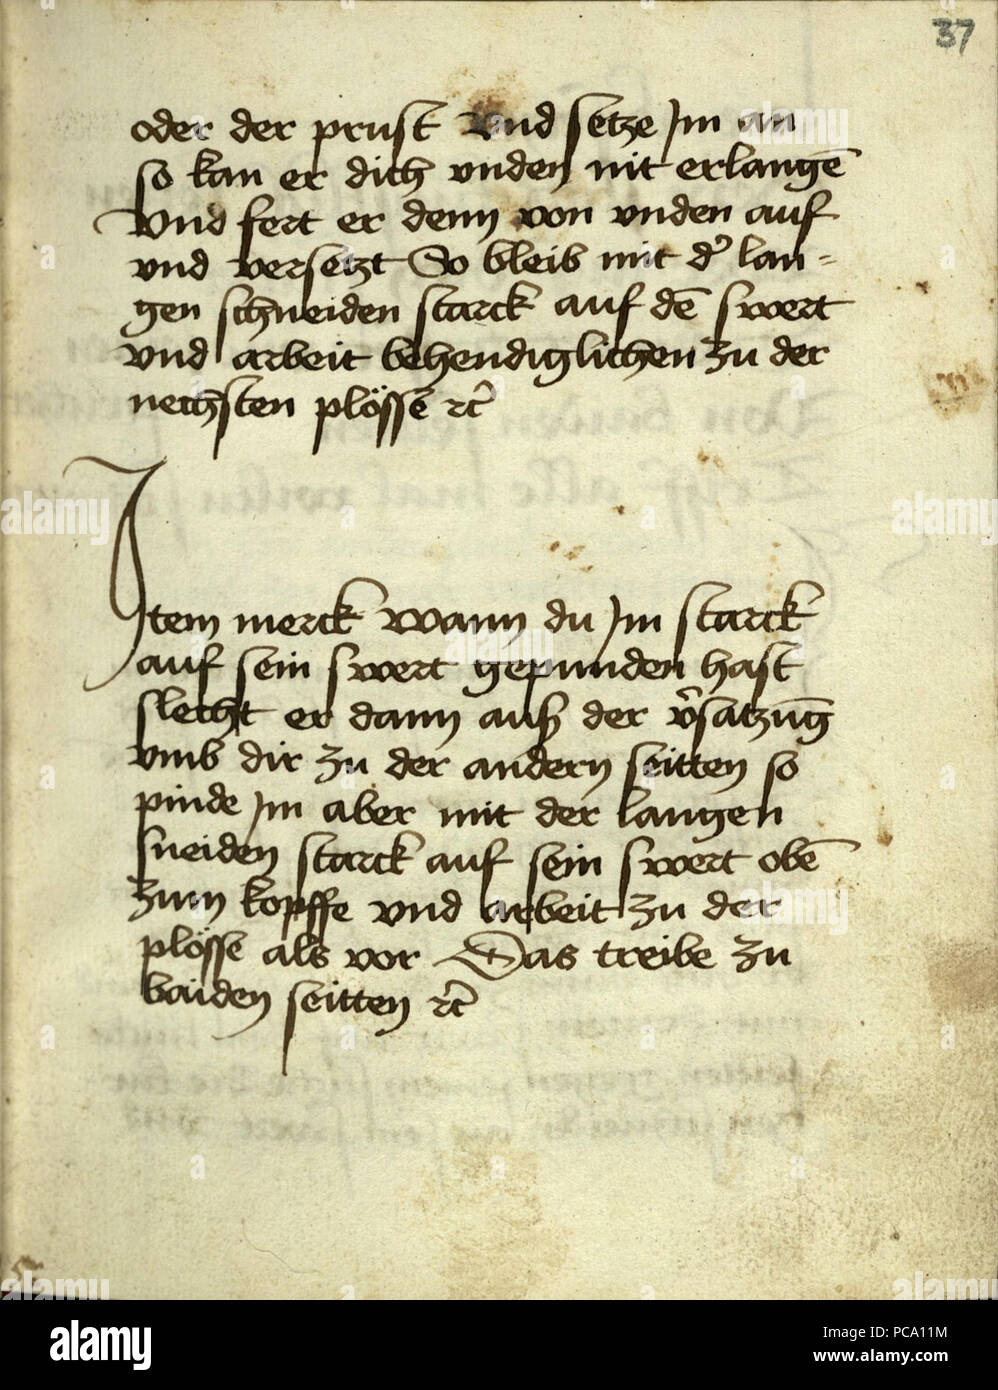 37
oder der prust Vnd setze Jm an
so kan er dich vnden nit erlangē
Vnd fert er denn von vnden auf
vnd versetzt So bleib mit d᾽ lan=
gen schneiden starck auf dē swert
vnd arbeit behendiglichen zu der
nechsten plössē ꝛc̄
Item merck wann du Jm starck
auf sein swert gepunden hast
slecht er dann auß der v᾽satzūg
vmb dir zu der andern seitten so
pinde Jm aber mit der langen
sneiden starck auf sein swert obē
zum kopffe vnd arbeit zu der
plössē als vor Das treibe zu
baiden seitten ꝛc̄
alamy
Image ID: PCA11M
www.alamy.com